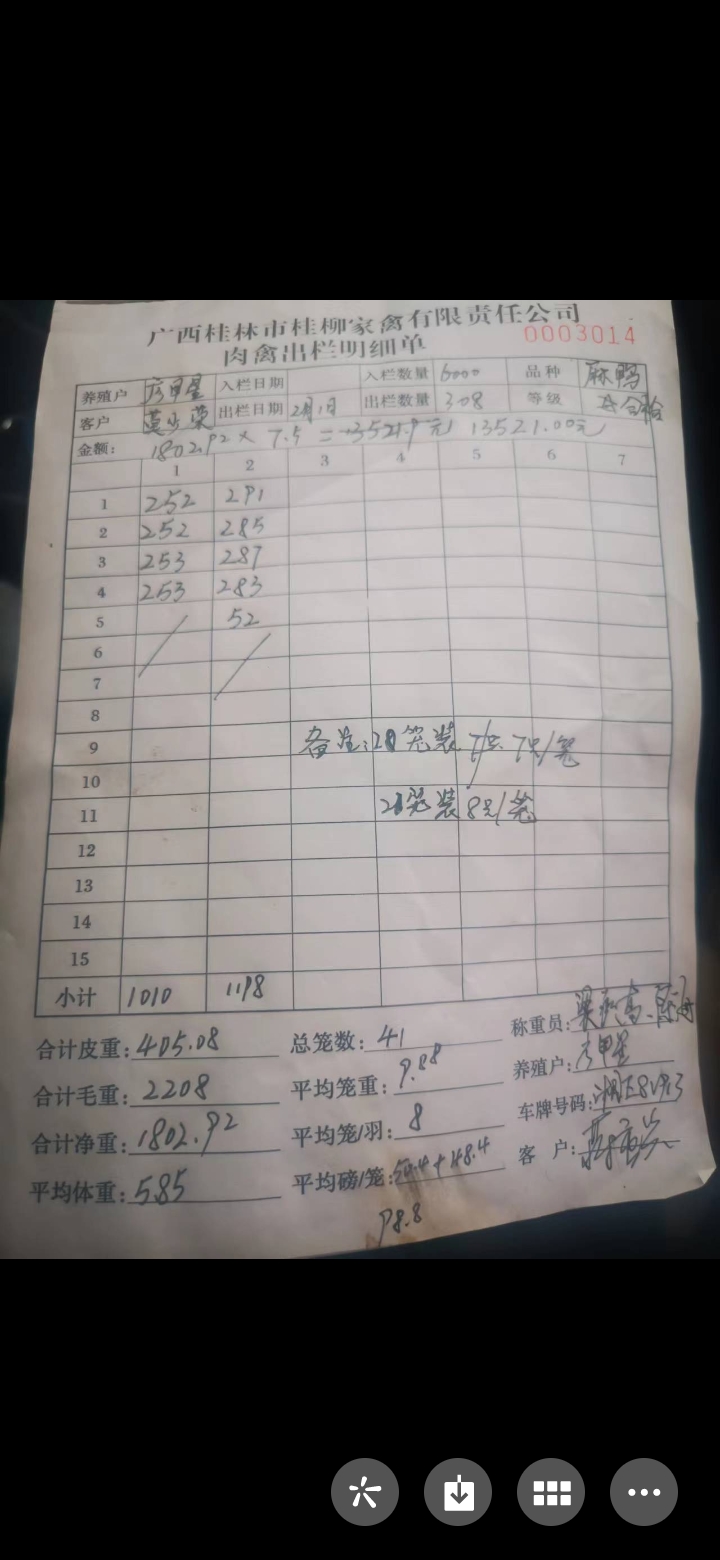 广西桂林市桂柳家禽有限责任公司
肉禽出栏明细单 0003014
养殖户 入栏日期 入栏数量 6000 品种 麻鸭
客户 出栏日期 2月1日 出栏数量 308 等级
金额: 1802.92 × 7.5 = 13521.9元 13521.00元
1 2 3 4 5 6 7
1 252 291
2 252 285
3 253 287
4 253 283
5 52
6
7
8
9 备注:20笼装 7只/笼
10
11 21笼装8只/笼
12
13
14
15
小计 1010 1198
合计皮重: 405.08 总笼数: 41 称重员:
合计毛重: 2208 平均笼重: 9.88 养殖户:
合计净重: 1802.92 平均笼/羽: 8 车牌号码:
平均体重: 5.85 平均磅/笼: 50.4+48.4 客户:
98.8